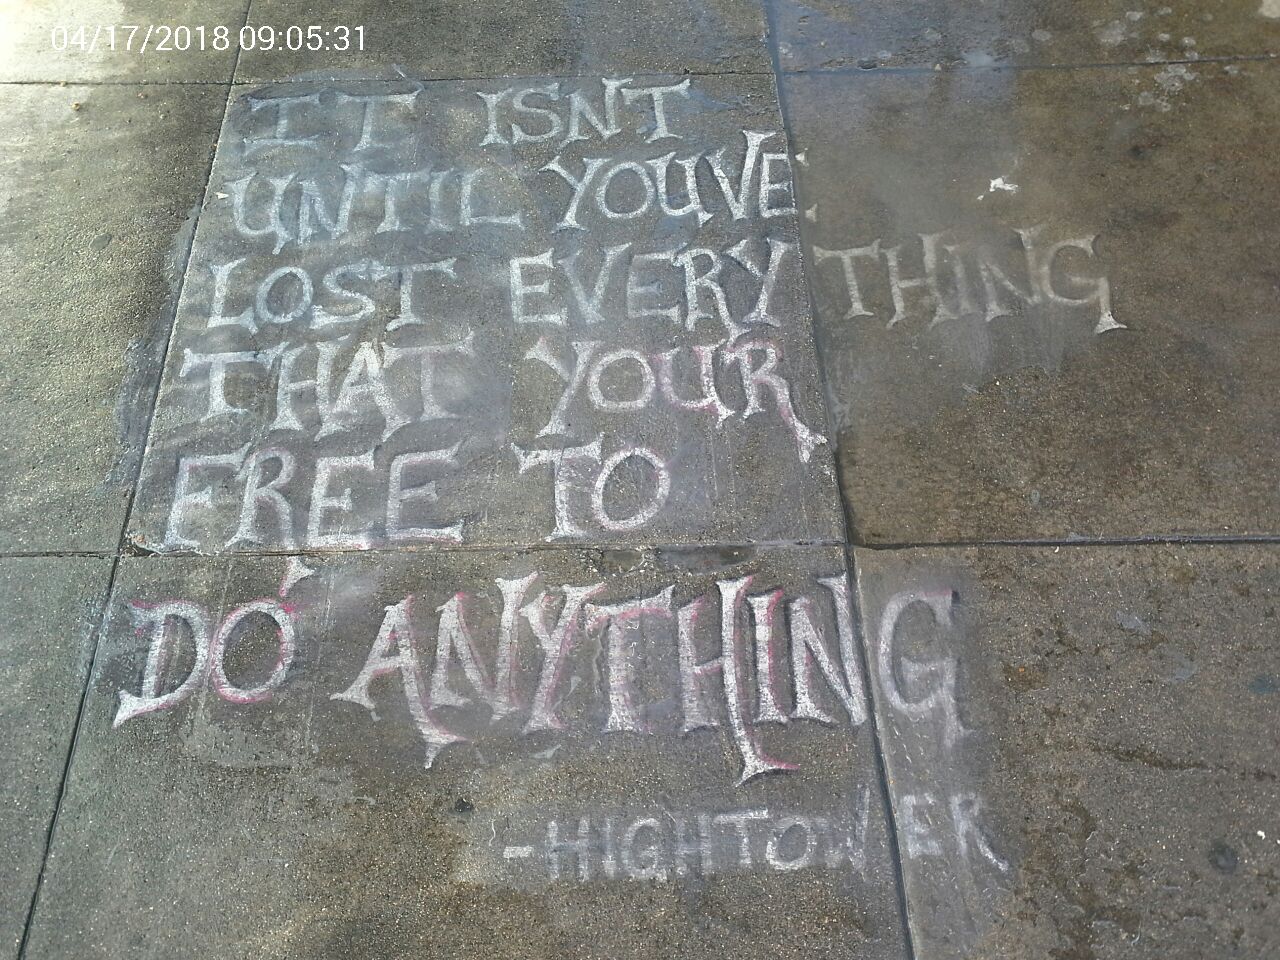 04/17/2018 09:05:31
IT ISNT
UNTIL YOUVE
LOST EVERYTHING
THAT YOUR
FREE TO
DO ANYTHING
-HIGHTOWER